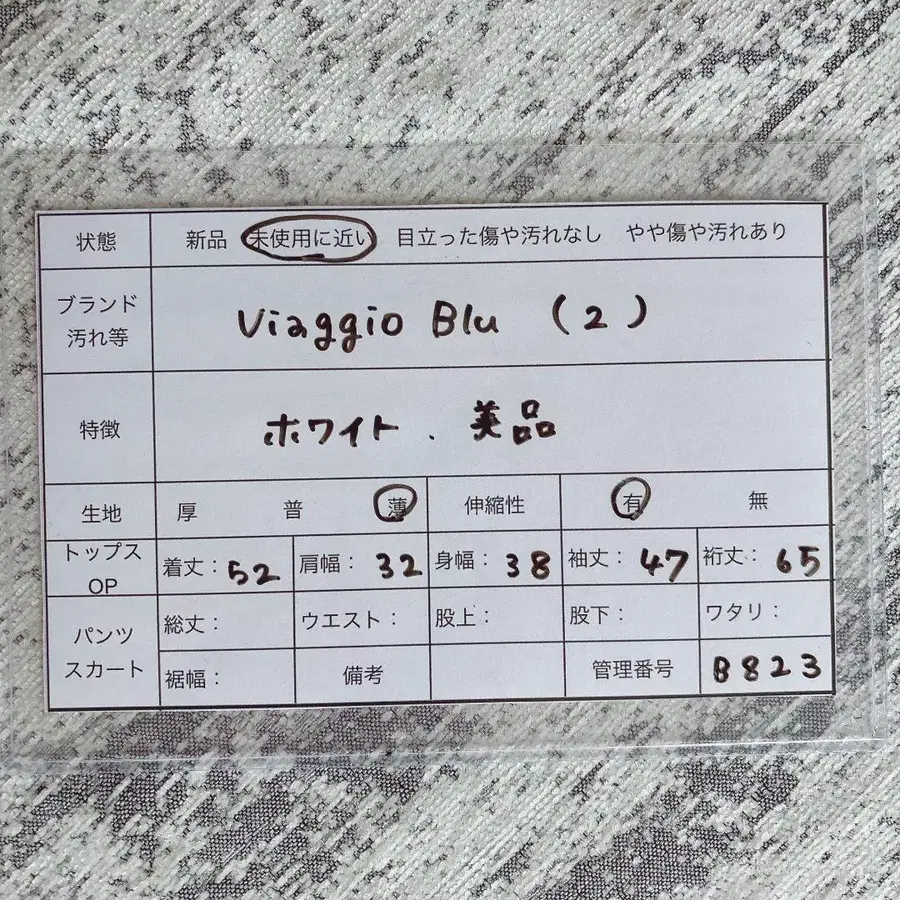 状態 新品 未使用に近い 目立った傷や汚れなし やや傷や汚れあり
ブランド
汚れ等
Viaggio Blu (2)
特徴 ホワイト . 美品
生地 厚 普 薄 伸縮性 有 無
トップス
OP
着丈：52 肩幅：32 身幅：38 袖丈：47 裄丈：65
パンツ
スカート
総丈： ウエスト： 股上： 股下： ワタリ：
裾幅： 備考 管理番号 B823